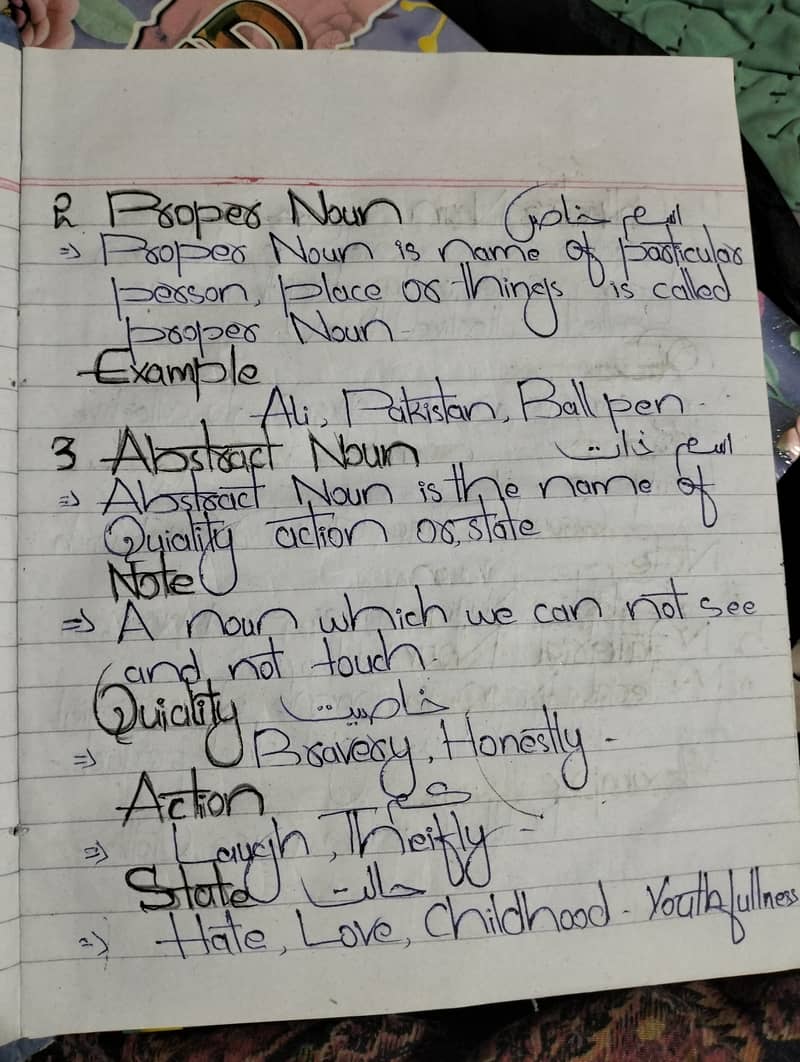 2 Proper Noun اسم خاص
⇒ Proper Noun is name of particular
person, place or things is called
proper Noun
Example
Ali, Pakistan, Ball pen.
3 Abstract Noun اسم ذات
⇒ Abstract Noun is the name of
Quiality action or, state
Note
⇒ A noun which we can not see
and not touch.
Quiality خاصیت
⇒ Bravery, Honestly -
Action
⇒ Laugh, Theifly -
State حالت
⇒ Hate, Love, Childhood - Youthfullness